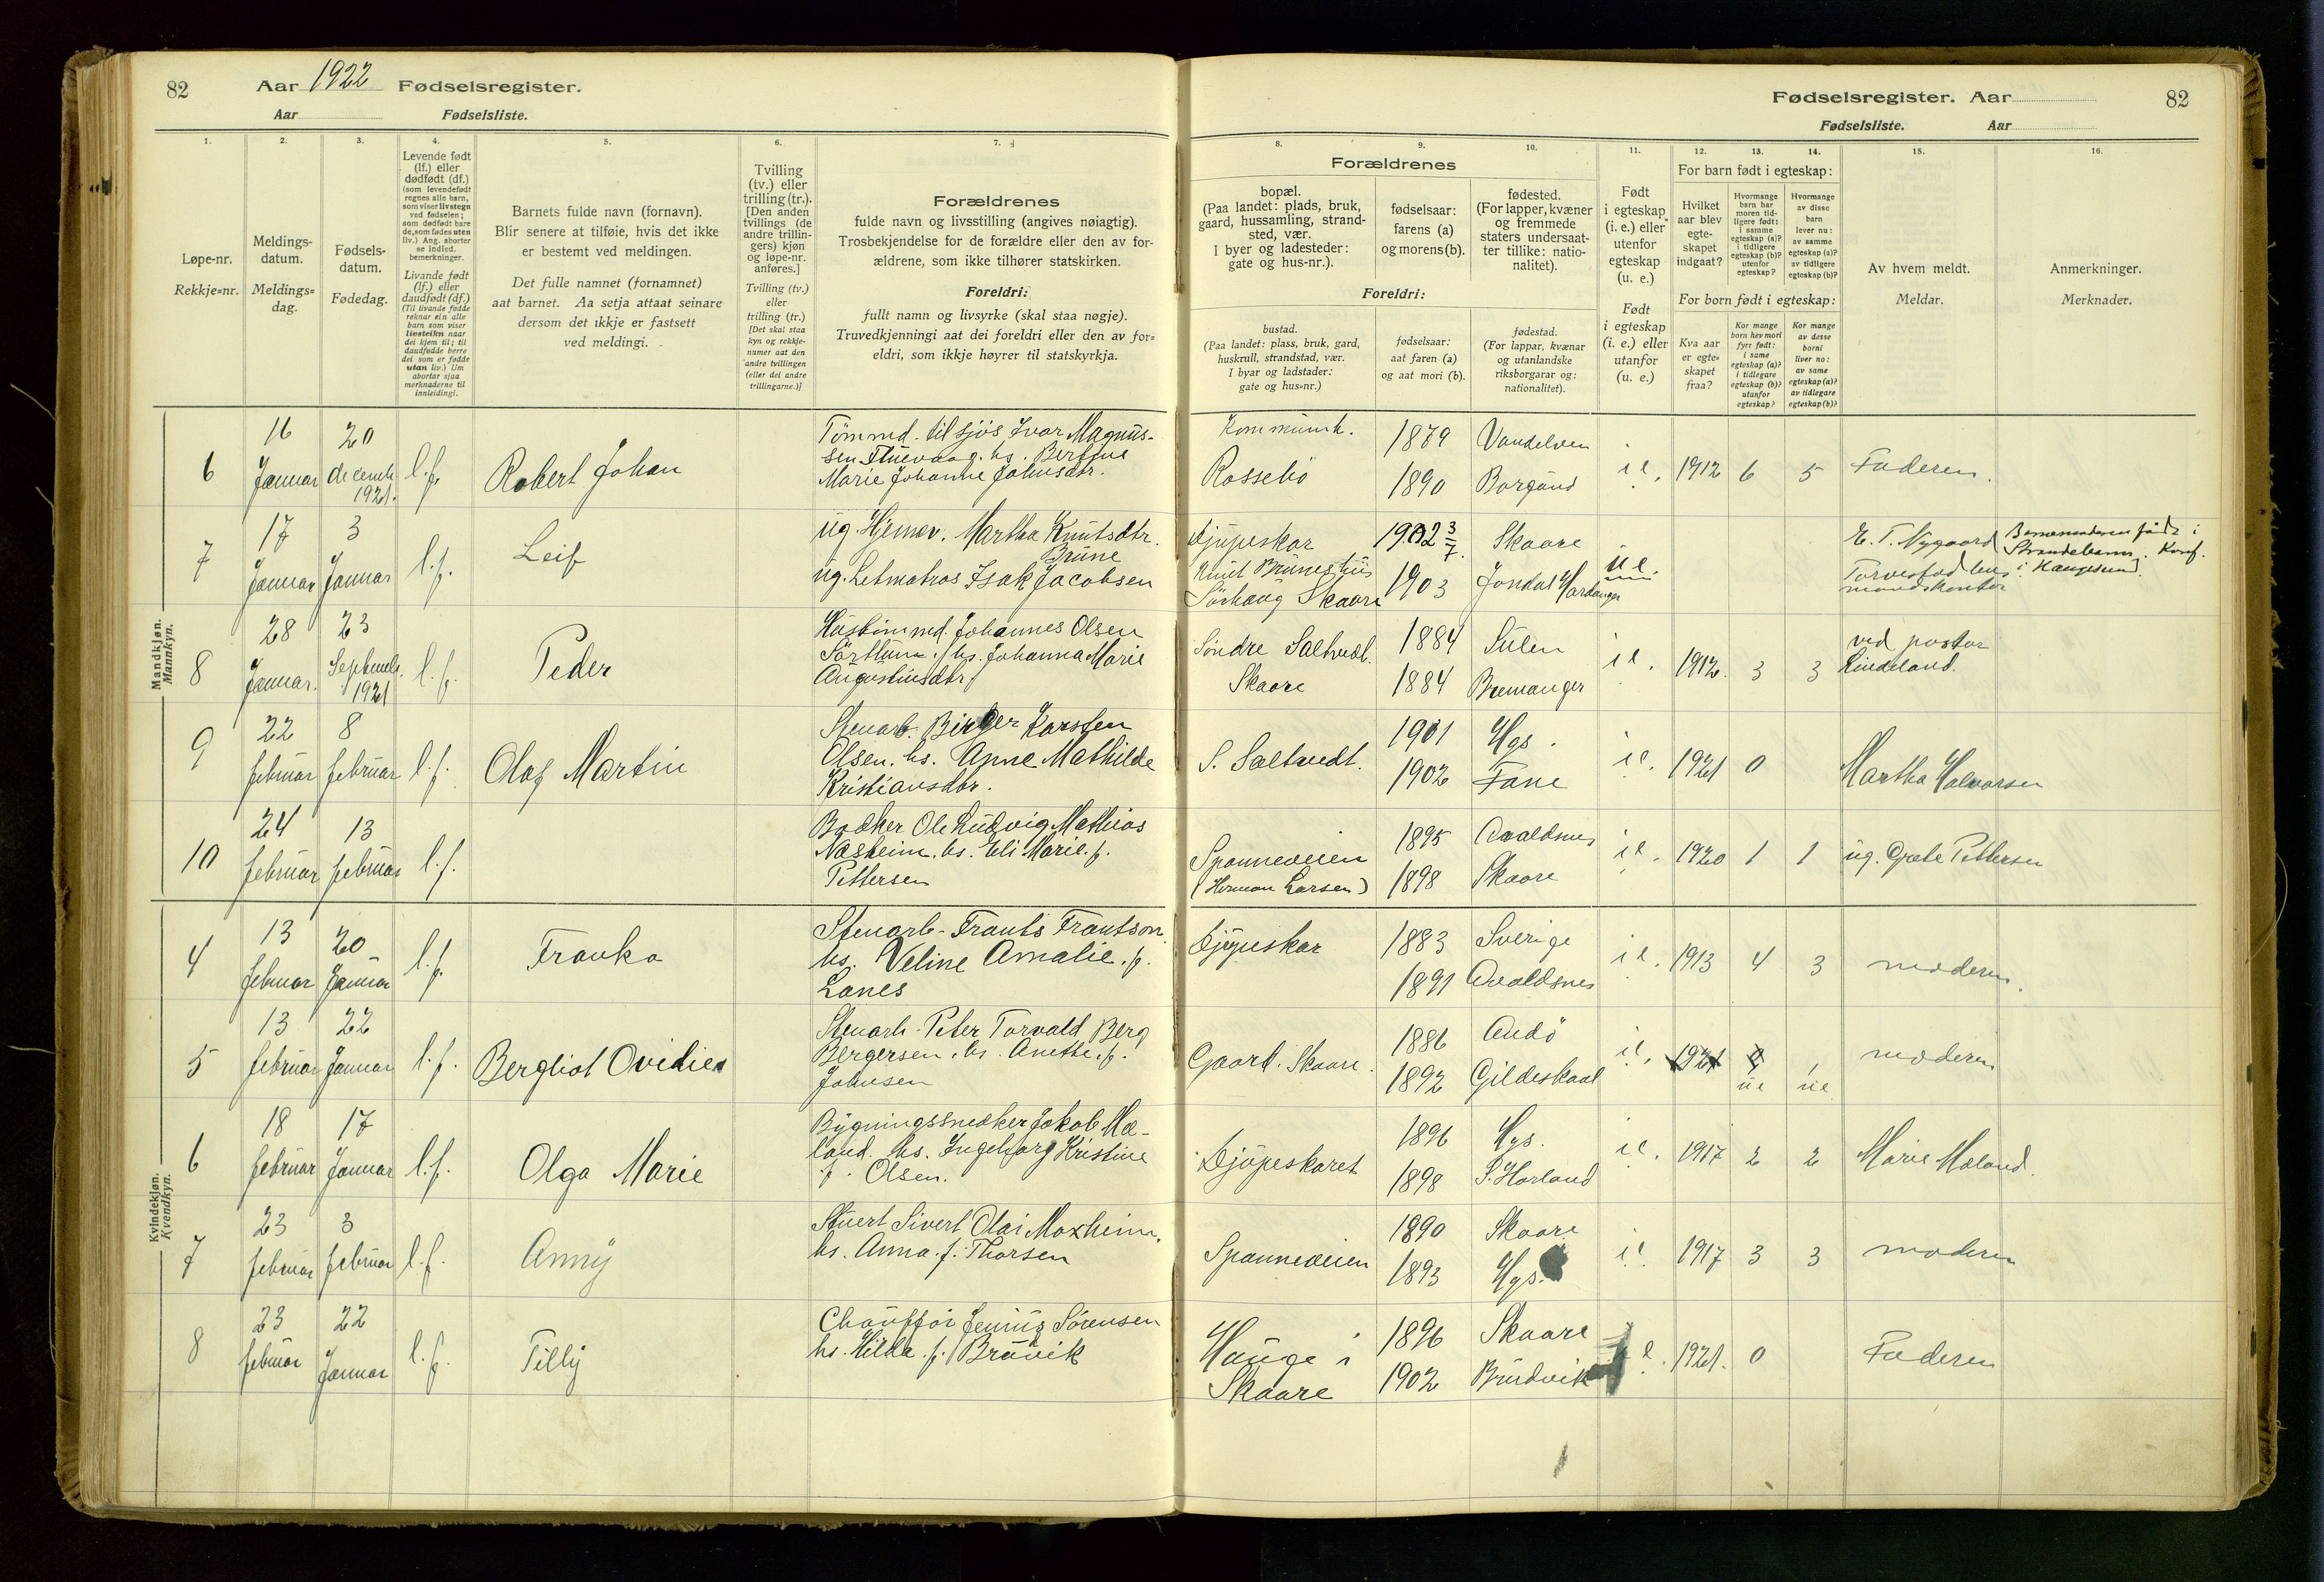 82
Aar 1922 Fødselsregister.
Aar Fødselsliste.
1.
2.
3.
4.
5.
6.
7.
Løpe-nr.
Rekkje=nr.
Meldings-
datum.
Meldings=
dag.
Fødsels-
datum.
Fødedag.
Levende født
(lf.) eller
dødfødt (df.)
(som levendefødt
regnes alle barn,
som viser livstegn
ved fødselen;
som dødfødt bare
de, som fødes uten
liv.) Ang. aborter
se indled.
bemerkninger.
Livande født
(lf.) eller
daudfødt (df.)
(Til livande fødde
reknar ein alle
barn som viser
livsteikn naar
dei kjem til; til
daudfødde berre
dei som er fødde
utan liv.) Um
abortar sjaa
merknaderne til
innleidingi.
Barnets fulde navn (fornavn).
Blir senere at tilføie, hvis det ikke
er bestemt ved meldingen.
Det fulle namnet (fornamnet)
aat barnet. Aa setja attaat seinare
dersom det ikkje er fastsett
ved meldingi.
Tvilling
(tv.) eller
trilling (tr.).
[Den anden
tvillings (de
andre trillin-
gers) kjøn
og løpe-nr.
anføres.]
Tvilling (tv.)
eller
trilling (tr.)
[Det skal staa
kyn og rekkje-
numer aat den
andre tvillingen
(eller dei andre
trillingarne.)]
Forældrenes
fulde navn og livsstilling (angives nøiagtig).
Trosbekjendelse for de forældre eller den av for-
ældrene, som ikke tilhører statskirken.
Foreldri:
fullt namn og livsyrke (skal staa nøgje).
Truvedkjenningi aat dei foreldri eller den av for=
eldri, som ikkje høyrer til statskyrkja.
Mandkjøn.
Mannkyn.
6
16
Januar
20
decemb
1921.
l.f.
Robert Johan
Tømmd. til sjøs Ivar Magnus-
sen hs. Bertine
Marie Johanne Johnsdtr.
7
17
Januar
3
Januar
l.f.
Leif
ug. Hjemev. Martha Knutsdtr.
Brune
ug. Letmatros Isak Jacobsen
8
28
Januar.
23
Septemb.
1921
l.f.
Peder
Johannes Olsen
hs. Johanna Marie
Augustinsdtr.
9
22
februar
8
februar
l.f.
Olaf Martin
Stenarb. Birger Karsten
Olsen. hs. Anne Mathilde
Kristiansdtr.
10
24
februar
13
februar
l.f.
Bødker Ole Ludvig Mathias
Næsheim. hs. Eli Marie. f.
Pettersen
Kvindekjøn.
Kvendkyn.
4
13
februar
20
Januar
l.f.
Franka
Stenarb. Frants Frantson.
hs. Veline Amalie. f.
Lanes
5
13
februar
22
Januar
l.f.
Bergliot Ovidie
Stenarb. Peter Torvald Berg
Bergersen. hs. Anette. f.
Johnsen
6
18
februar
17
Januar
l.f.
Olga Marie
Bygningssnedker Jakob Mæ-
land. hs. Ingeborg Kristine
f. Olsen.
7
23
februar
3
februar
l.f.
Anny
Sivert Olai Moxheim.
hs. Anna. f. Thorsen
8
23
februar
22
Januar
l.f.
Tilly
Chauffør Sørensen
hs. Hilda. f. Bruvik
Fødselsregister. Aar
82
Fødselsliste. Aar
8.
9.
10.
11.
12.
13.
14.
15.
16.
Forældrenes
bopæl.
(Paa landet: plads, bruk,
gaard, hussamling, strand-
sted, vær.
I byer og ladesteder:
gate og hus-nr.).
fødselsaar:
farens (a)
og morens (b).
fødested.
(For lapper, kvæner
og fremmede
staters undersaat-
ter tillike: natio-
nalitet).
Foreldri:
bustad.
(Paa landet: plass, bruk, gard,
huskrull, strandstad, vær.
I byar og ladstader:
gate og hus=nr.)
fødselsaar:
aat faren (a)
og aat mori (b).
fødestad.
(For lappar, kvænar
og utanlandske
riksborgarar og:
nationalitet).
Født
i egteskap
(i. e.) eller
utenfor
egteskap
(u. e.)
Født
i egteskap
(i. e.) eller
utanfor
(u. e.)
For barn født i egteskap:
Hvilket
aar blev
egte-
skapet
indgaat?
Hvormange
barn har
moren tid-
ligere født:
i samme
egteskap (a)?
i tidligere
egteskap (b)?
utenfor
egteskap?
Hvormange
av disse
barn
lever nu:
av samme
egteskap (a)?
av tidligere
egteskap (b)?
For born født i egteskap:
Kva aar
er egte=
skapet
fraa?
Kor mange
born hev mori
fyrr født:
i same
egteskap (a)?
i tidlegare
egteskap (b)?
utanfor
egteskap?
Kor mange
av desse
borni
liver no:
av same
egteskap (a)?
av tidlegare
egteskap (b)?
Av hvem meldt.
Meldar.
Anmerkninger.
Merknader.
Rossebø
1879
1890
Vandelven
Borgund
i e.
1912
6
5
Faderen.
Djupeskar
Knut Bruneshus
Sørhaug Skaare
1902 3/7.
1903
Skaare
Jondal Hardanger
u e.
E. T. Nygaard
Torvestad lens
mandskontor
Barnemoderen født i
Strandebarm. Konf.
i Haugesund.
Søndre Saltvedt.
Skaare
1884
1884
Sulen
Bremanger
i e.
1912.
3
3
ved pastor
Lindeland.
S. Saltvedt.
1901
1902
Hgs.
Fane
i e.
1921
0
Martha Halvorsen
Spanneveien
(Herman Larsen)
1895
1898
Avaldsnes
Skaare
i e.
1920
1
1
ug. Grete Pettersen
Djupeskar
1883
1891
Sverige
Avaldsnes
i e.
1913
4
3
moderen.
Gaard. Skaare.
1886
1892
Andö
Gildeskaal
i e.
1921
u e
1
u e
moderen
Djupeskaret
1896
1898
Hgs.
S. Havland
i e.
1917
2
2
Marie Mæland.
Spanneveien
1890
1893
Skaare
Hgs.
i e.
1917
3
3
moderen
Hauge i
Skaare
1896
1902
Skaare
Bruvik
i e.
1921.
0
Faderen